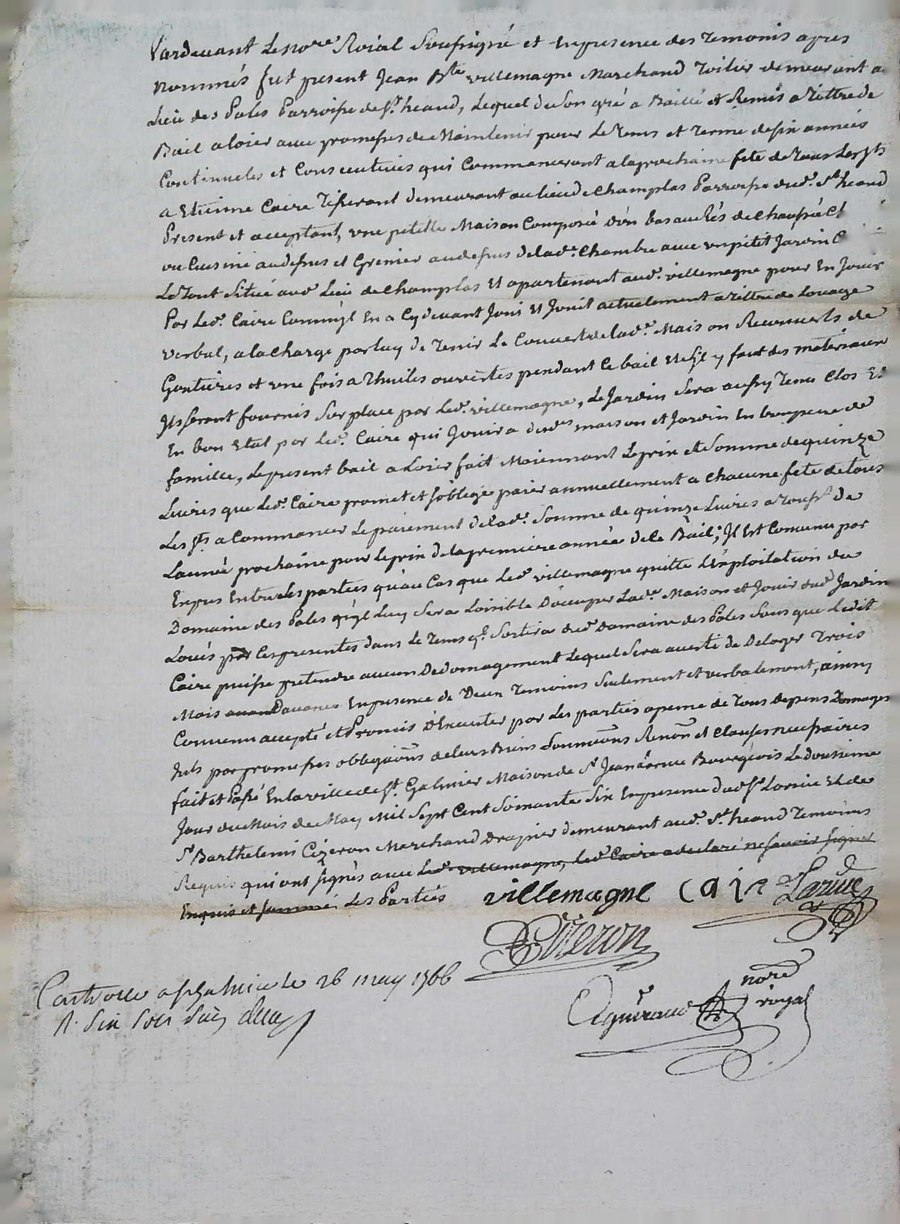 Pardevant Le no.re Roial Soussigné et En presence des Temoins apres
nommés fut present Jean B.te villemagne Marchand Toilier demeurant a
Lieu des Pales Parroisse de S.t heand, Lequel de son gré a Baillé et Remis a Tittre de
Bail a loier avec promesses de Maintenir pour Le Tems et Terme de six années
Continueles et Consecutives qui Commanceront a la prochaine fête de Tous Les S.ts
a Etienne Caire Tisserant demeurant au lieu de Champlas Parroisse dud. S.t heand
Present et acceptant, une petitte Maison Composée d'un bas au Rés de Chaussée
ou Cuisine au dessus et Grenier au dessus de lad.e Chambre avec un petit Jardin
Le Tout Situé aud. Lieu de Champlas Et apartenant aud. villemagne pour En Jouir
Par Led. Caire Comm'yl En a Cydevant Joui Et Jouit actuelement a Tittre de Louage
verbal, a la Charge par luy de Tenir Le Couvert de lad.e Maison Recouverts de
Goutières et une fois a Thuiles ouvertes pendant Ce bail Et s'yl y faut des matériaux
Ils seront fournis Sur place par Led. villemagne, Le Jardin Sera aussy Tenu Clos Et
En bon Etat par Led. Caire qui Jouira desd.es maison et Jardin En bon pere de
famille, Le present bail a Loier fait Moiennant Le prix et Somme de quinze
Livres que Led. Caire promet et s'oblige paier annuellement a Chacune fete de tous
Les S.ts a Commancer Le paiement de lad.e Somme de quinze Livres a Touss.t de
L'année prochaine pour Le prix de la premiere année de Ce Bail; Il Est Convenu par
Expres Entre Les parties qu'au Cas que Led. villemagne quitte L'Exploitation du
Domaine des Pales qu'yl Luy Sera Loisible D'occuper Lad.e Maison et Jouir dud. Jardin
Loués par Ces presentes dans Le Tems q'l Sortira dud. Domaine des Pales Sans que Ledit
Caire puisse pretendre aucun Dedomagement Lequel Sera averti de Deloger Trois
Mois D'avance En presence de Deux Temoins Seulement et verbalement, ainsy
Convenu accepté et Promis D'Executer par Les parties a peine de Tous depens Domages
Ints par promesses obligaõns de leurs Biens Soumissions Renon.s et Clauses necessaires
fait et Passé En la ville de S.t Galmier Maison de S.r Jean Larive Bourgeois Le dousieme
Jour du Mois de May Mil Sept Cent Soixante Six En presence dud. S.r Larive Et de
S.r Barthelemi Cizeron Marchand Drapier demeurant aud. S.t heand Temoins
Requis qui ont signés avec Led. villemagne, Led. Caire a declaré ne savoir signer
Enquis et sommé. Les Parties villemagne caire Larive
B Cizeron
Controllé a S.t galmier le 26 may 1766
R. Six Sols Six den.s
no.re
royal